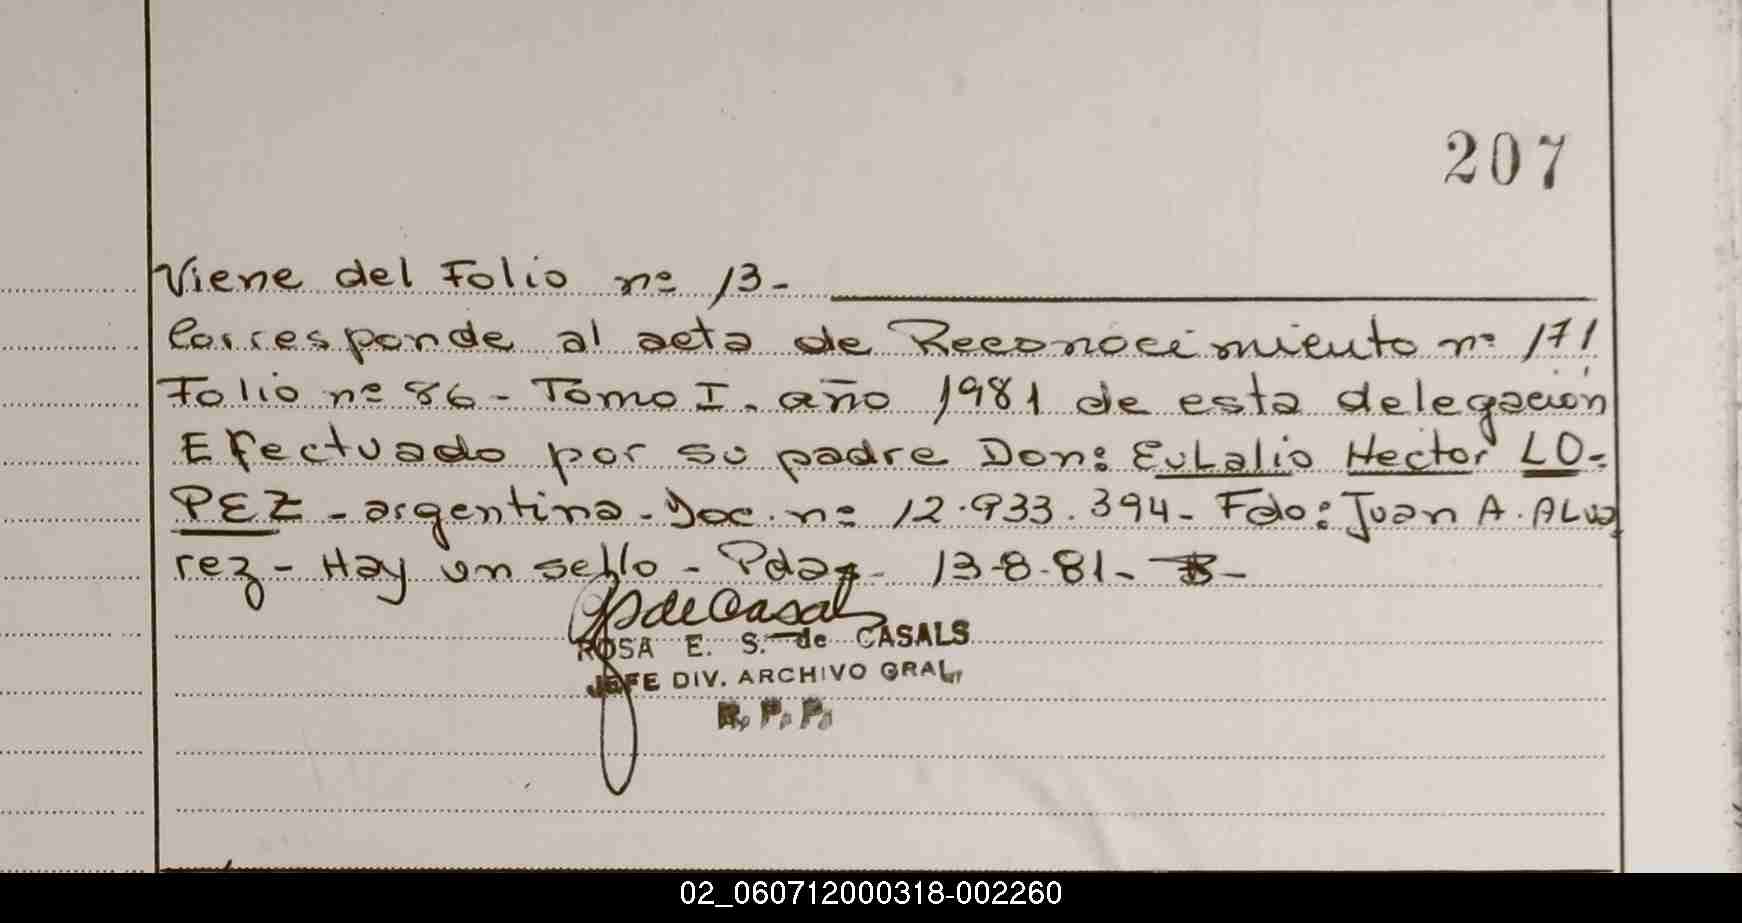 207
Viene del Folio nº 13-
Corresponde al acta de Reconocimiento nº 171
Folio nº 86 - Tomo I. año 1981 de esta delegación
Efectuado por su padre Don: Eulalio Hector LO-
PEZ - argentina - Doc. nº 12.933.394 - Fdo: Juan A. ALva
rez - Hay un sello - Pdas - 13-8-81 -
ROSA E. S. de CASALS
JEFE DIV. ARCHIVO GRAL.
R. P. P.
02_060712000318-002260